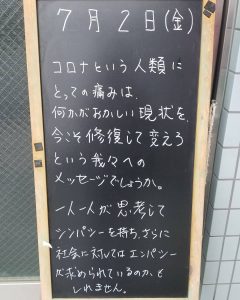 7月2日(金)
コロナという人類に
とっての痛みは、
何かがおかしい現状を、
今こそ修復して変えろ
という我々への
メッセージでしょうか。
一人一人が思考して
シンパシーを持ち、さらに
社会に対してはエンパシー
が求められているのかも
しれません。